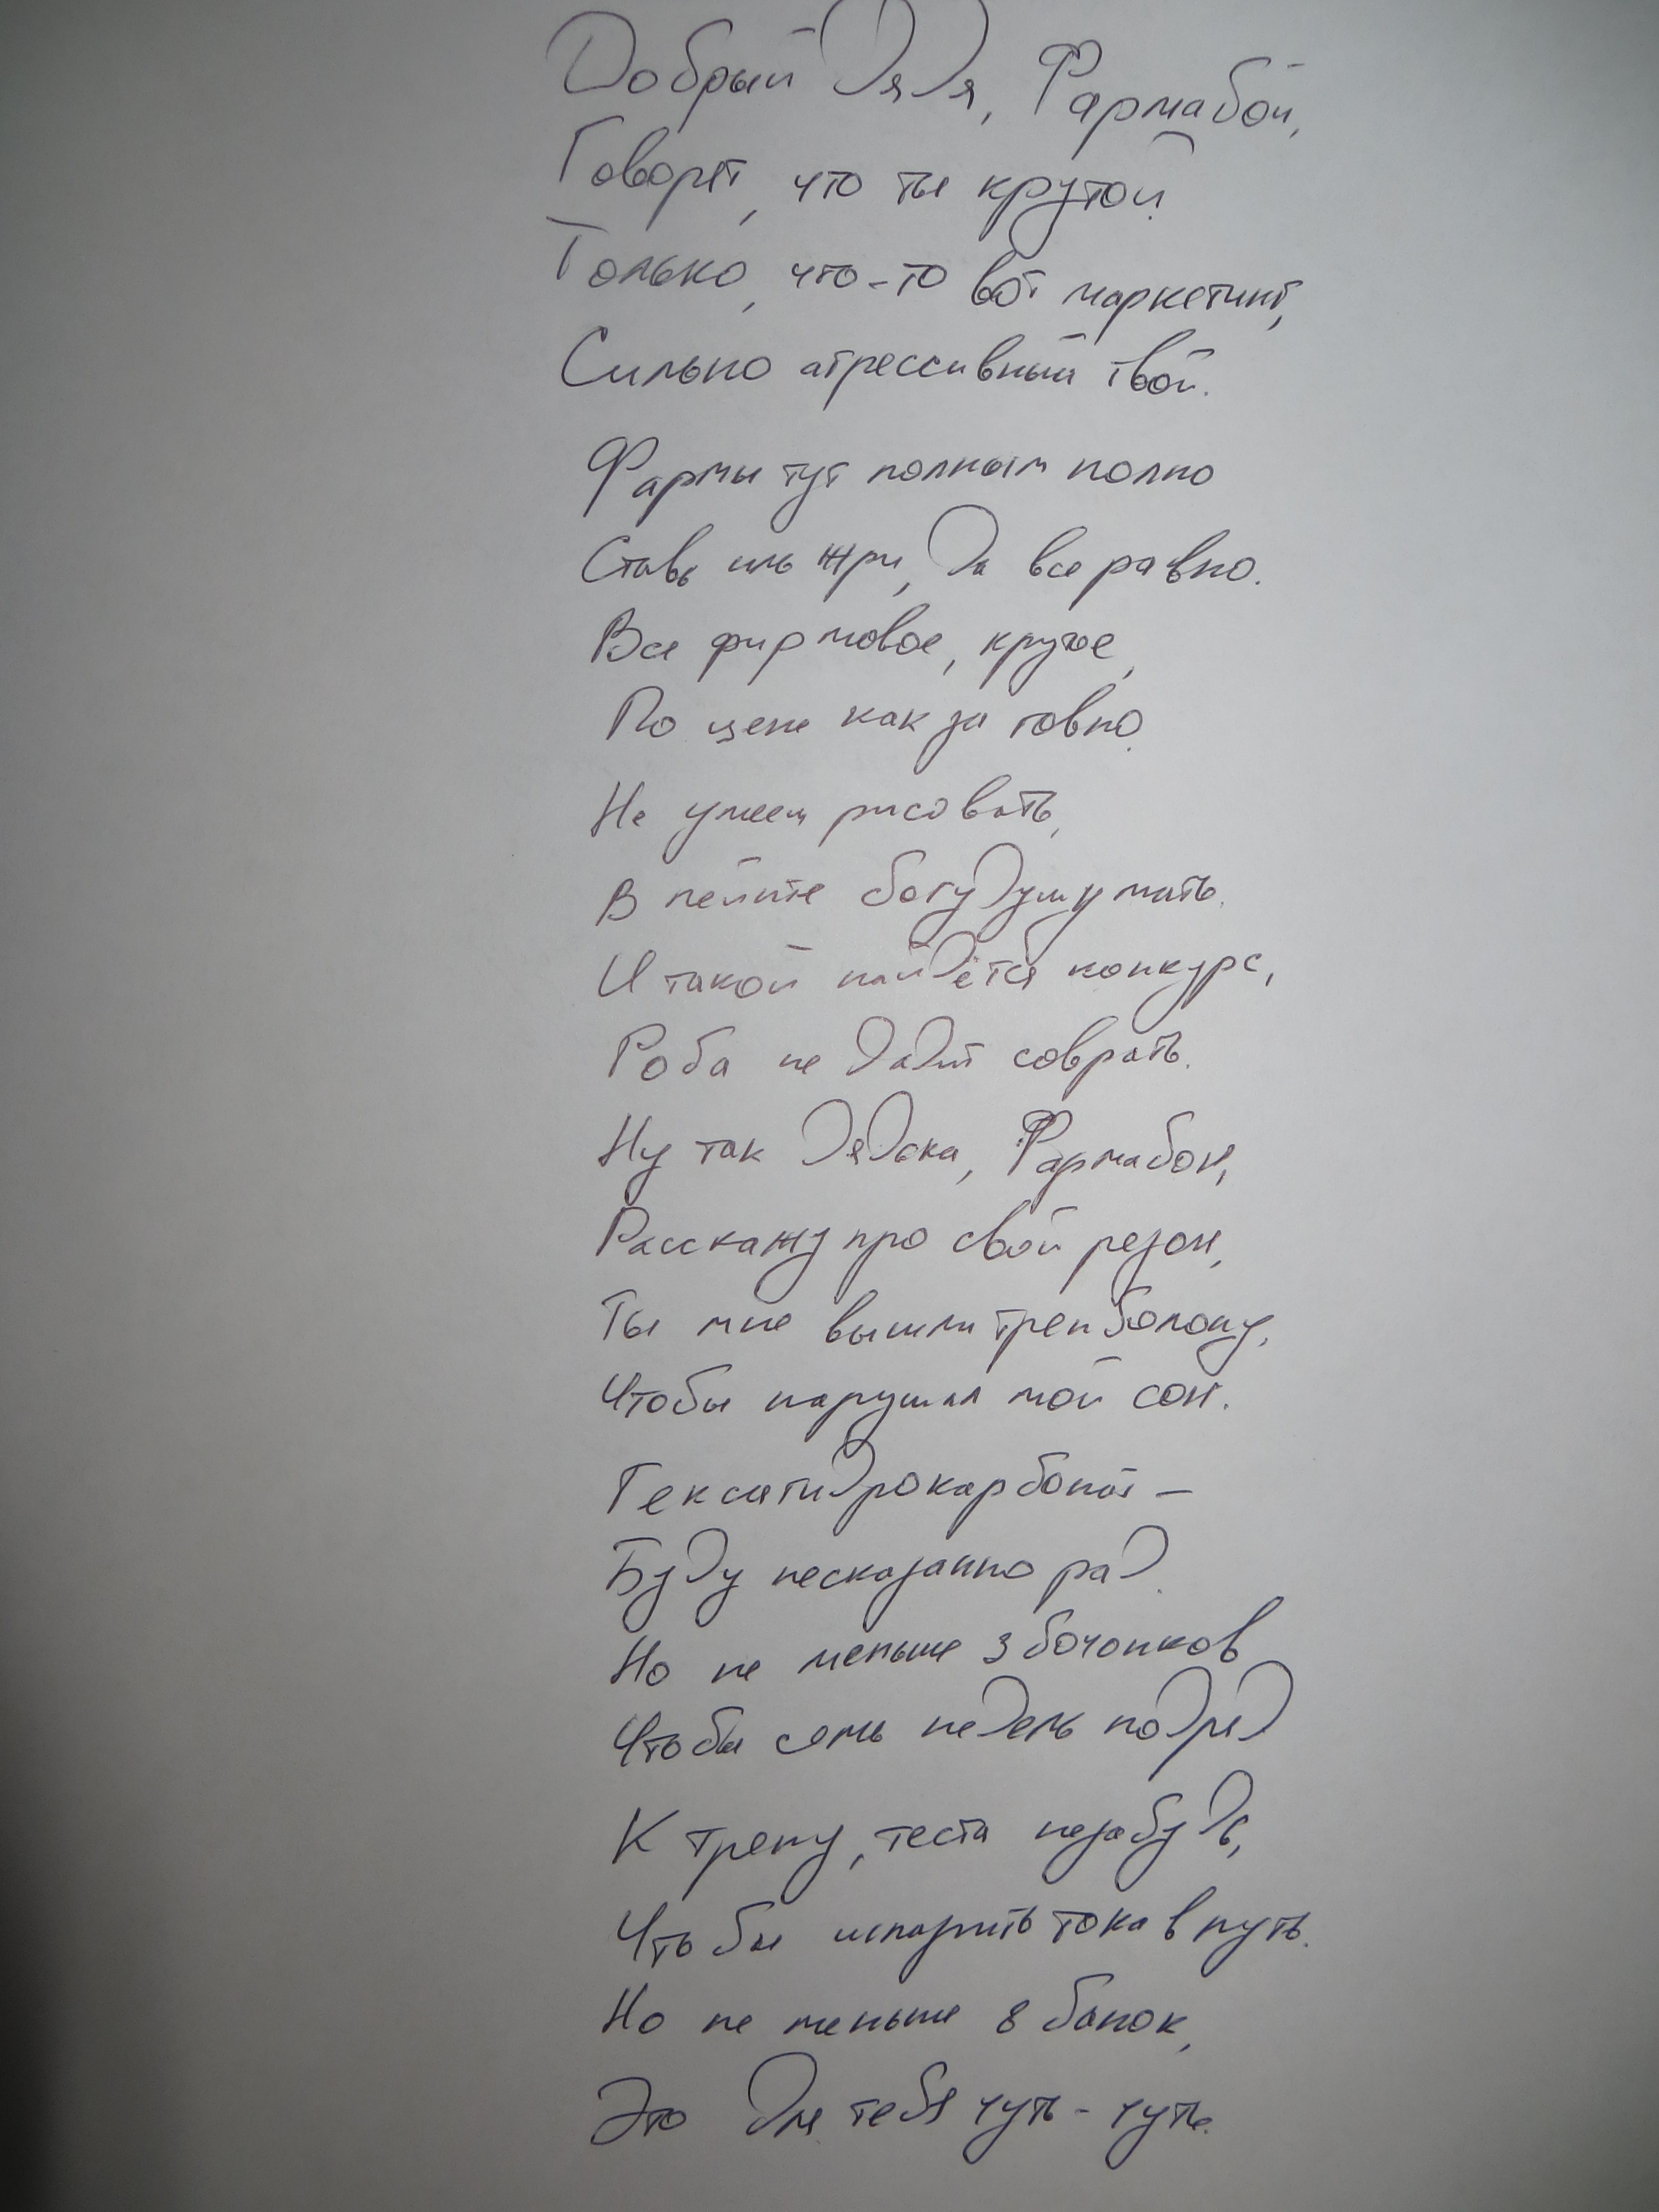 Добрый дядя, Фармабой,
Говорят, что ты крутой.
Только, что-то вот маркетинг,
Сильно агрессивный твой.
Фармы тут полным полно
Ставь иль жри, да все равно.
Все фирмовое, крутое,
По цене как за говно.
Не умеем рисовать,
В пейнте богу душу мать.
И такой найдётся конкурс,
Роба не дадит соврать.
Ну так дядька, Фармабой,
Расскажу про свой резон,
Ты мне вышли тренболону,
Чтобы нарушал мой сон.
Гексагидрокарбонат –
Буду несказанно рад.
Но не меньше 3 бочонков
Чтобы семь недель подряд
К трену, теста незабудь,
Чтобы испарить гока в путь.
Но не меньше 8 банок,
Это для тебя чуть-чуть.